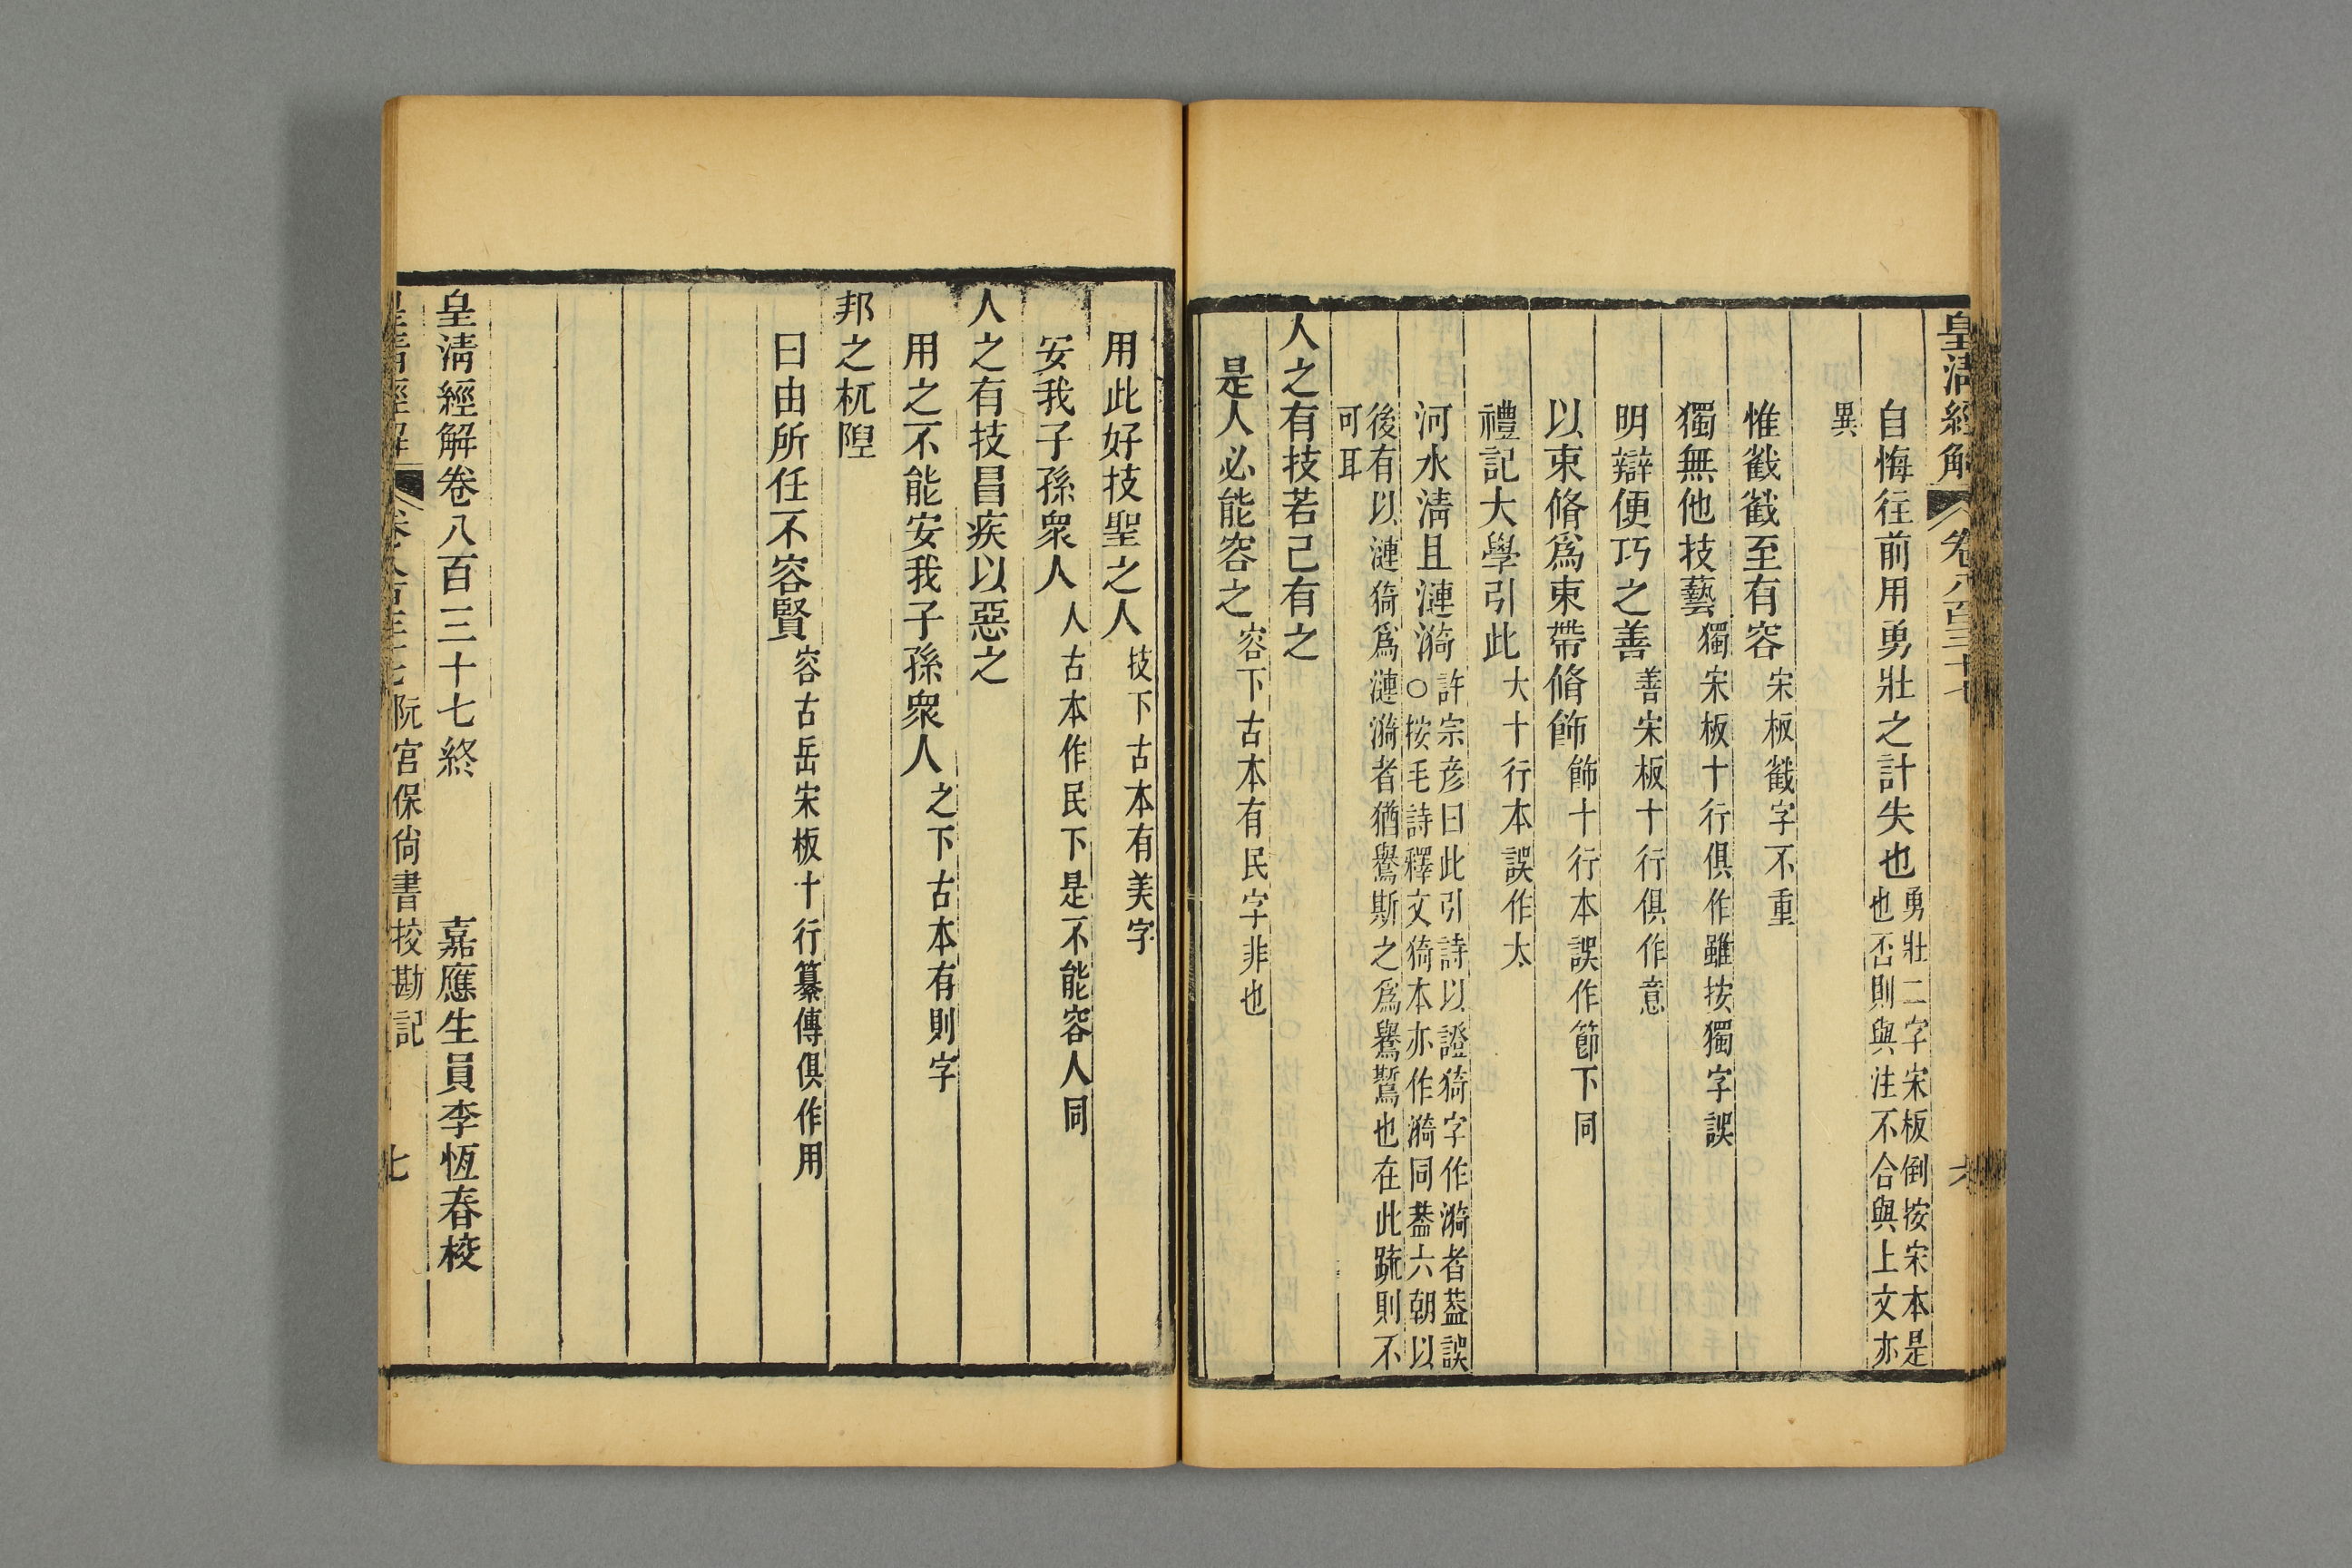 皇清經解 卷八百三十七 六
自悔往前用勇壯之計失也勇壯二字宋板倒按宋本是
也否則與注不合與上文亦
異
惟截截至有容宋板截字不重
獨無他技藝獨宋板十行俱作雖按獨字誤
明辯便巧之善善宋板十行俱作意
以束脩爲束帶脩飾飾十行本誤作節下同
禮記大學引此大十行本誤作太
河水淸且漣漪許宗彦曰此引詩以證猗字作漪者葢誤
○按毛詩釋文猗本亦作漪同葢六朝以
後有以漣猗爲漣漪者猶鸒斯之爲鸒鷽也在此䟽則不
可耳
人之有技若己有之
是人必能容之容下古本有民字非也
用此好技聖之人技下古本有美字
安我子孫衆人人古本作民下是不能容人同
人之有技冒疾以惡之
用之不能安我子孫衆人之下古本有則字
邦之杌隉
曰由所任不容賢容古岳宋板十行纂傳俱作用
皇淸經解卷八百三十七終 嘉應生員李恆春校
皇清經解 卷八百三十七 阮宫保尙書挍勘記 七